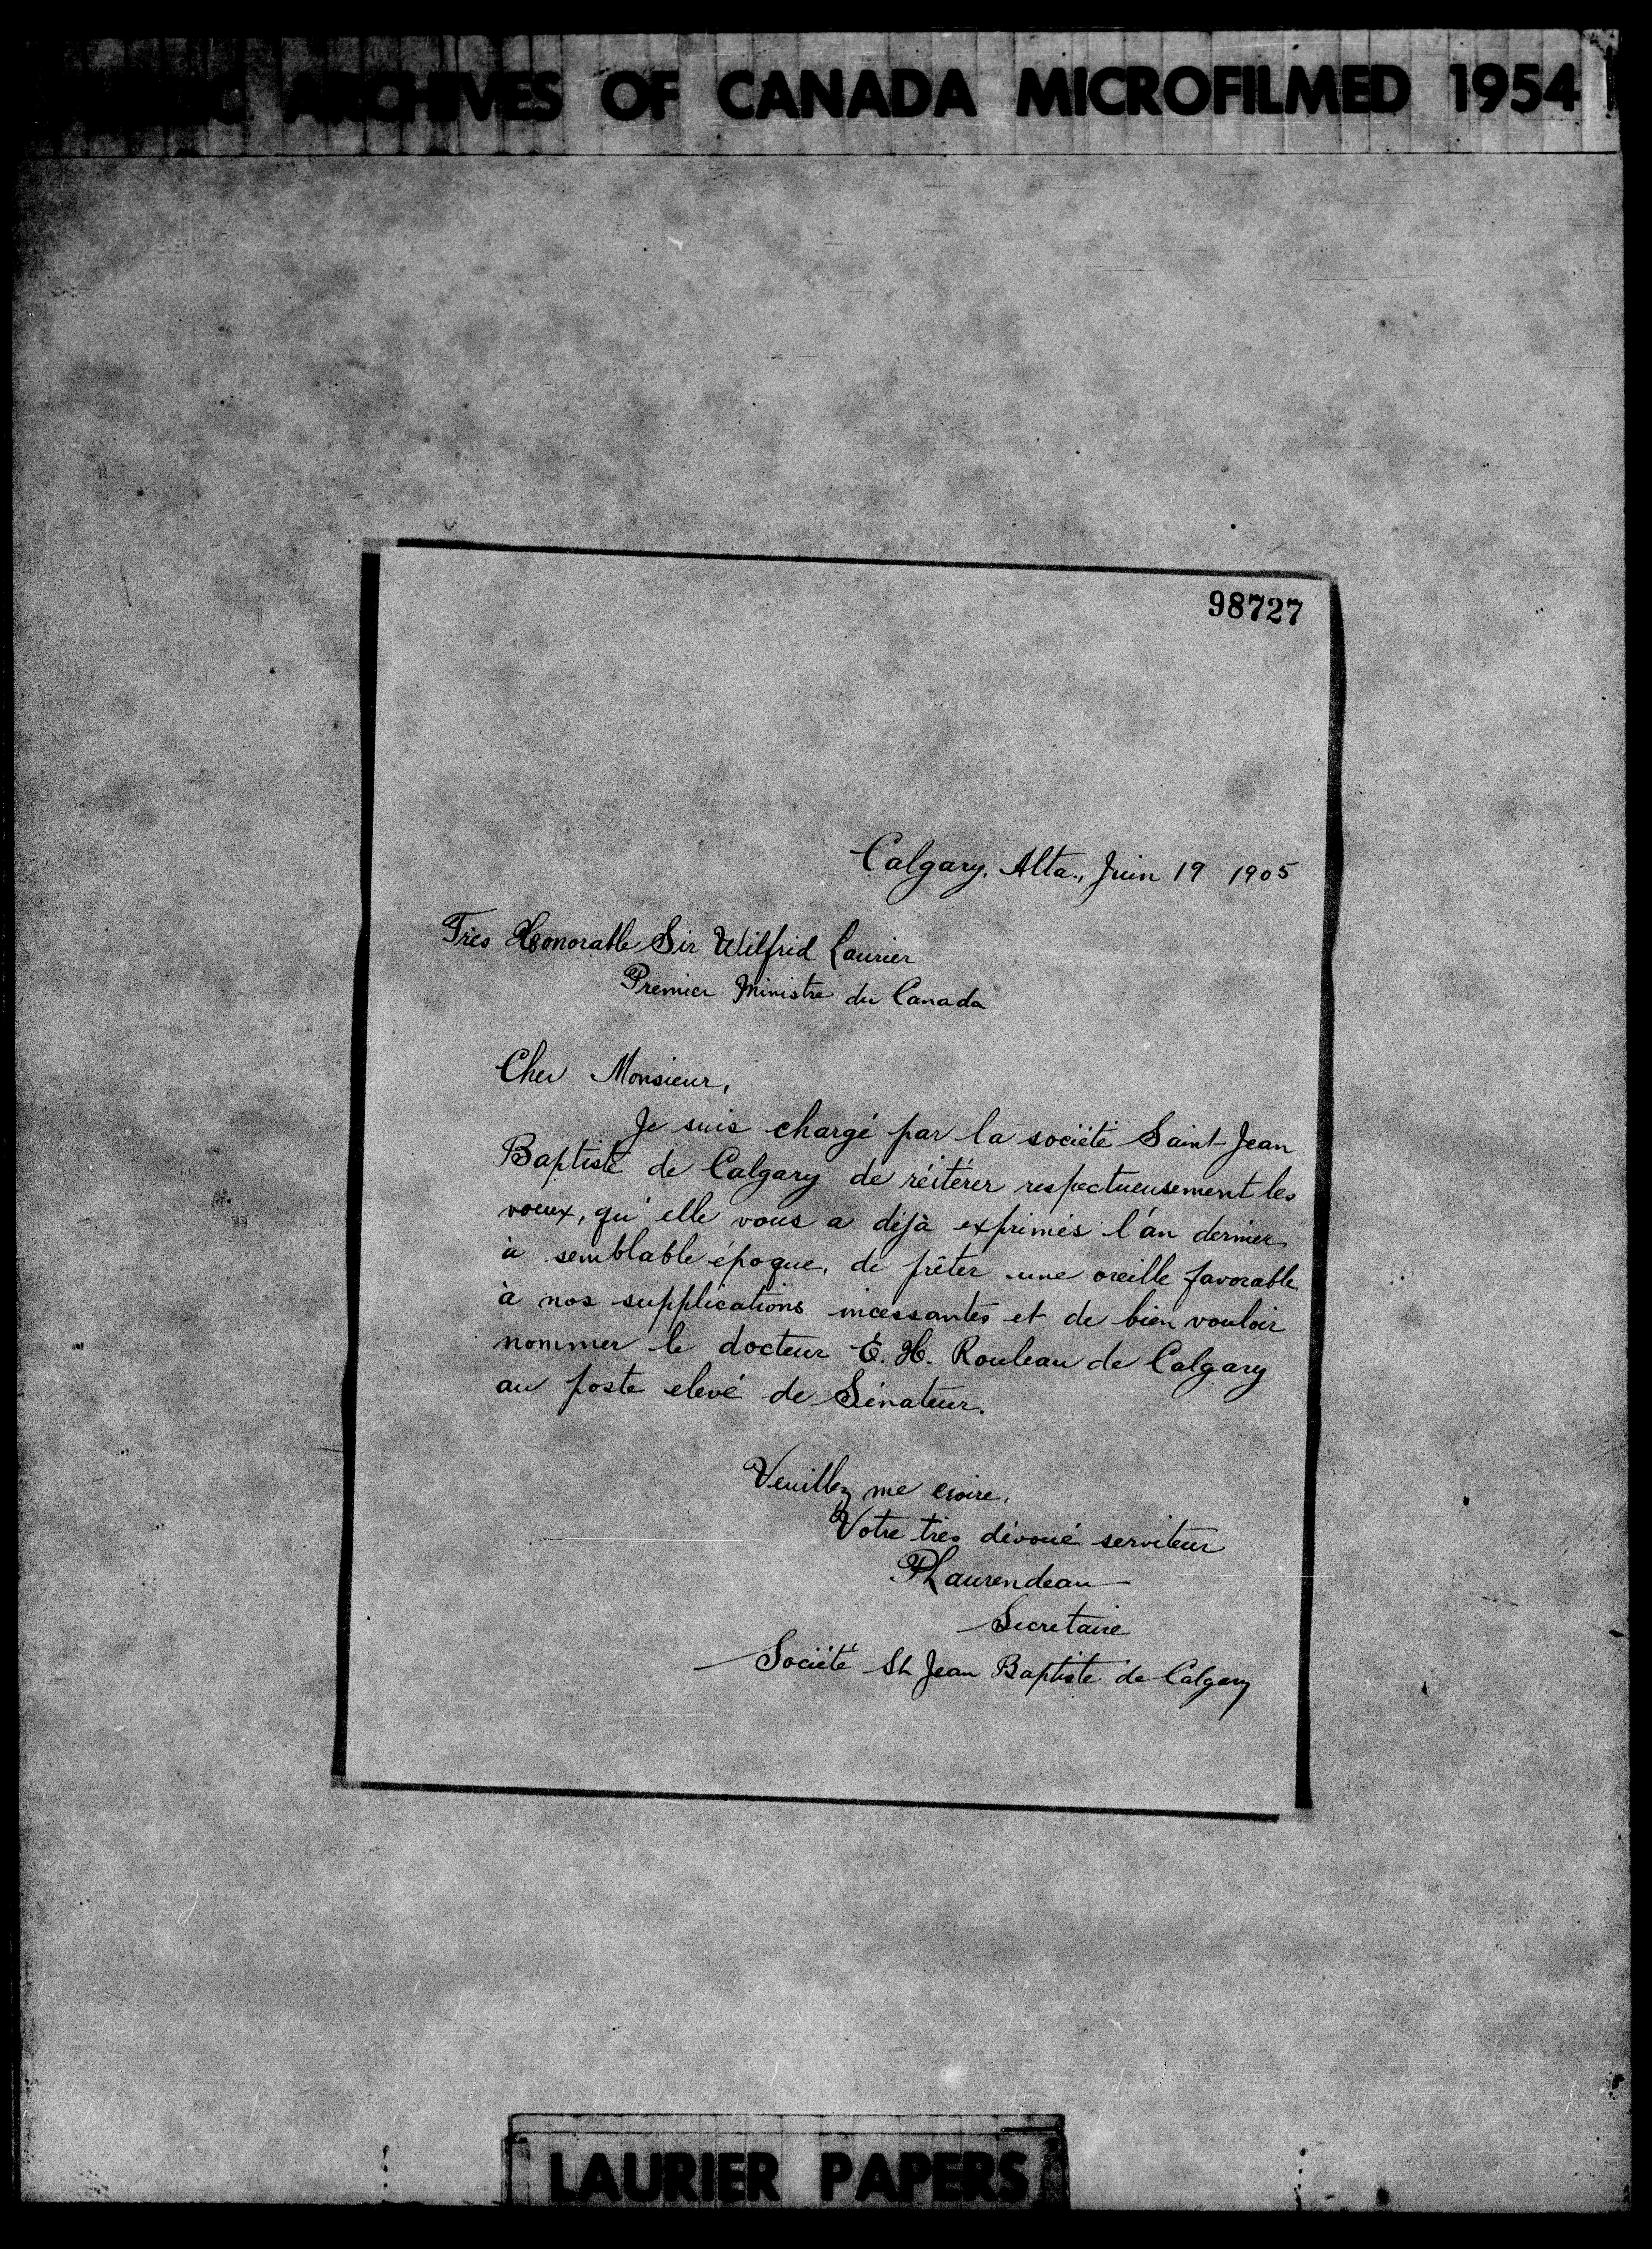 ARCHIVES OF CANADA MICROFILMED 1954
98727
Calgary, Alta., Juin 19 1905
Très Honorable Sir Wilfrid Laurier
Premier Ministre du Canada
Cher Monsieur,
Je suis chargé par la société Saint-Jean
Baptiste de Calgary de réitérer respectueusement les
voeux, qu'elle vous a déjà exprimés l'an dernier
à semblable époque, de prêter une oreille favorable
à nos supplications incessantes et de bien vouloir
nommer le docteur E. H. Rouleau de Calgary
au poste elevé de Sénateur.
Veuillez me croire,
Votre très dévoué serviteur
P Laurendeau
Secretaire
Société St Jean Baptiste de Calgary
LAURIER PAPERS